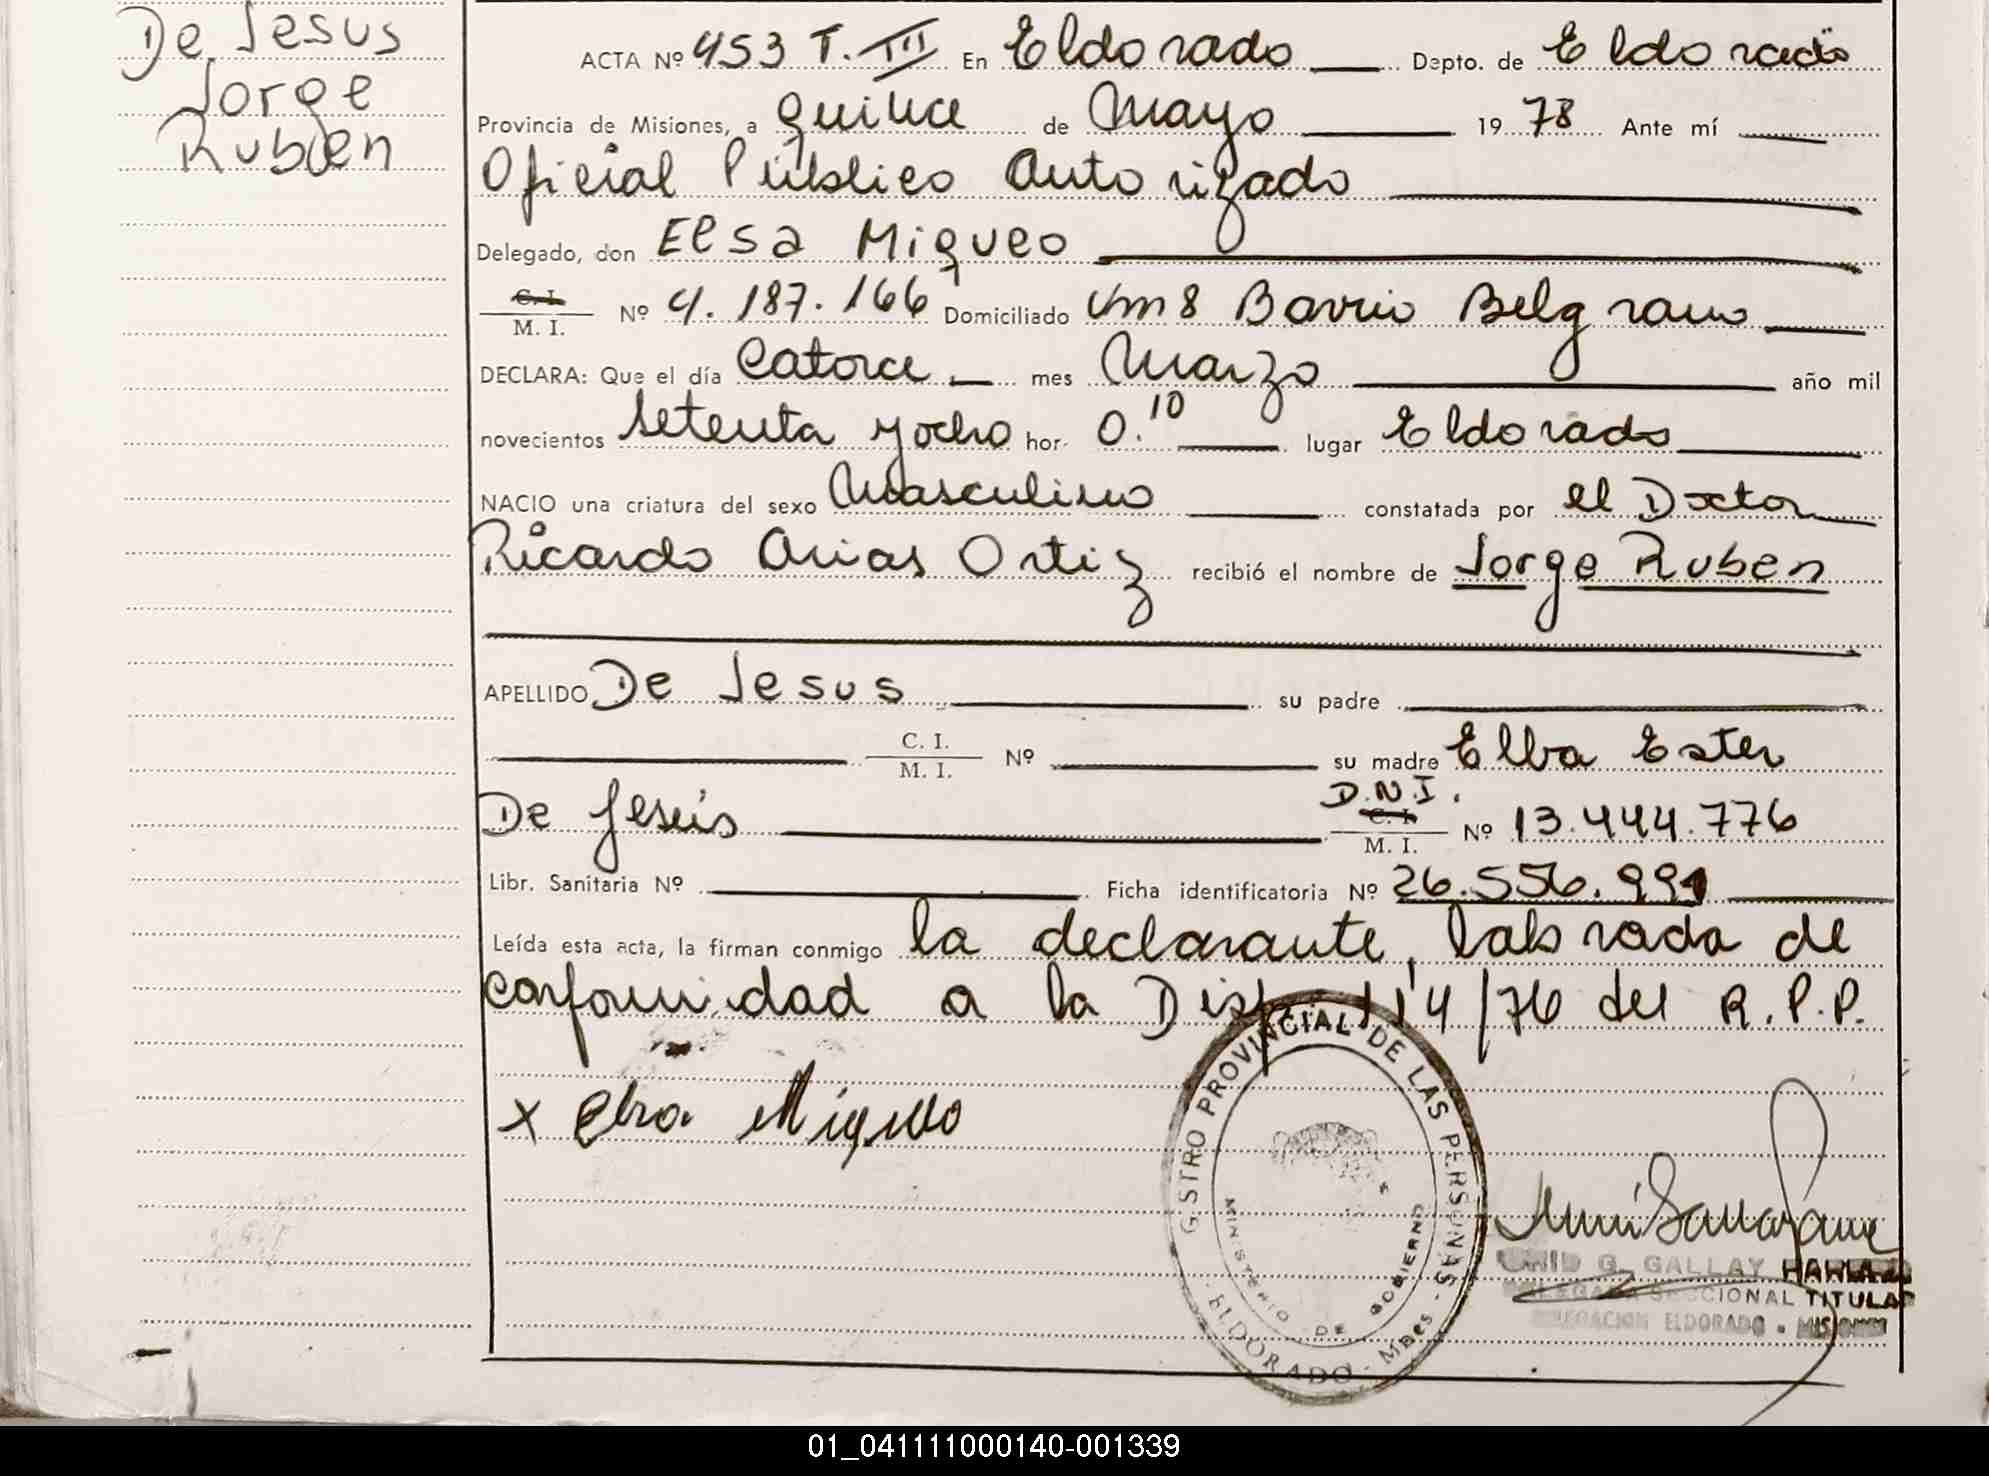 De Jesus
Jorge
Ruben
ACTA Nº 453 T. III En Eldorado Depto. de Eldorado
Provincia de Misiones, a quince de Mayo 19 78 Ante mí
Oficial Público Autorizado
Delegado, don Elsa Miqueo
C. I.
M. I. Nº 4.187.166 Domiciliado Km 8 Barrio Belgrano
DECLARA: Que el día Catorce mes Marzo año mil
novecientos setenta y ocho hor. 0.10 lugar Eldorado
NACIO una criatura del sexo Masculino constatada por el Doctor
Ricardo Arias Ortiz recibió el nombre de Jorge Ruben
APELLIDO De Jesus su padre
C. I.
M. I. Nº su madre Elba Ester
D.N.I.
De Jesús C. I.
M. I. Nº 13.444.776
Libr. Sanitaria Nº Ficha identificatoria Nº 26.556.991
Leída esta acta, la firman conmigo la declarante, labrada de
conformidad a la Disp. 114/76 del R.P.P.
x Elsa Miqueo
GISTRO PROVINCIAL DE LAS PERSONAS
MINISTERIO DE GOBIERNO
ELDORADO - Mnes -
G. GALLAY
DELEGADA SECCIONAL TITULAR
DELEGACION ELDORADO - MISIONES
01_041111000140-001339